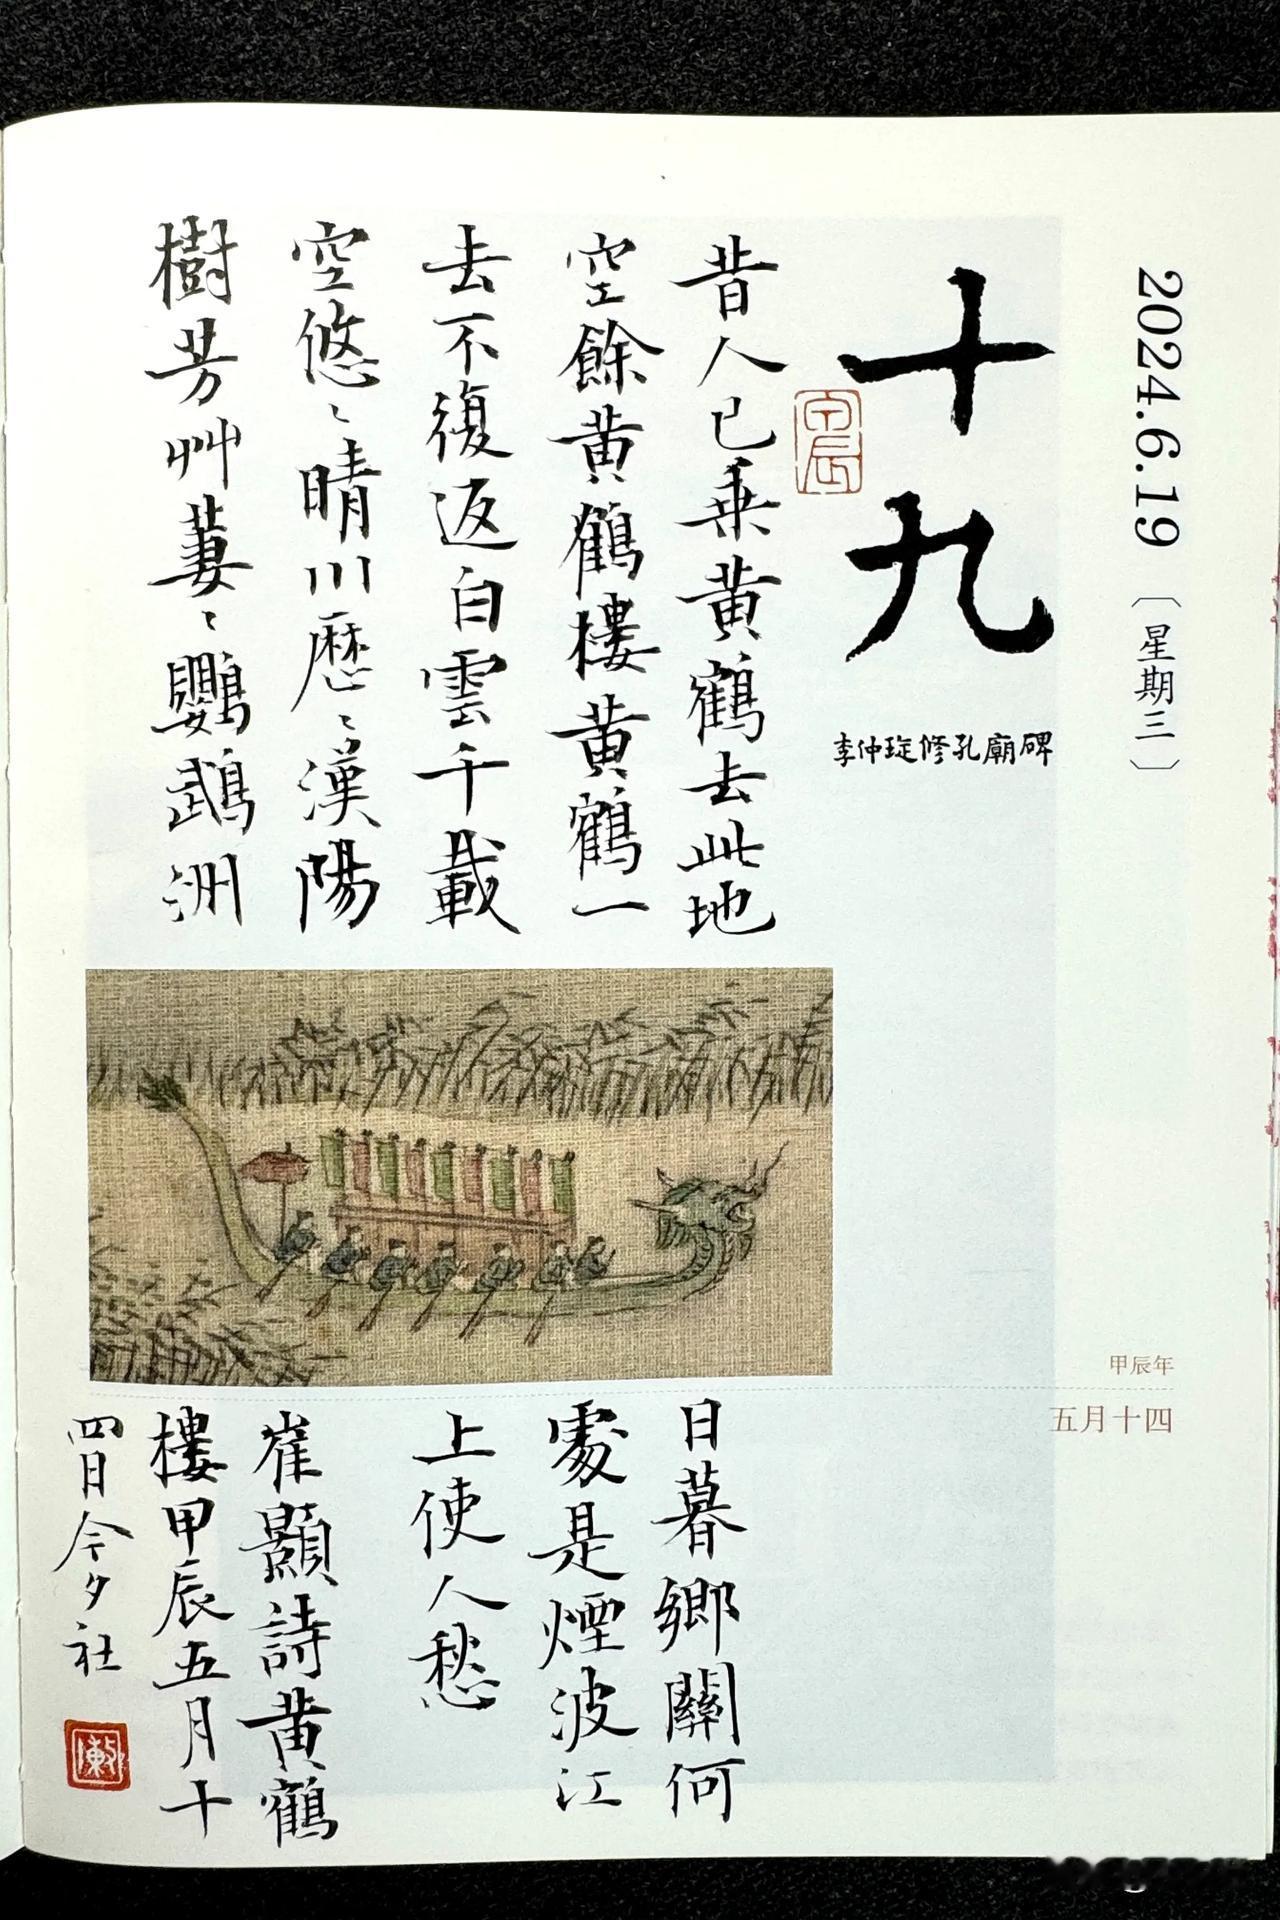 2024.6.19〔星期三〕
十九
李仲璇修孔廟碑
昔人已乗黄鶴去此地
空餘黄鶴樓黄鶴一
去不復返白雲千載
空悠〻晴川歷〻漢陽
樹芳艸萋〻鸚鵡洲
甲辰年
五月十四
日暮鄉關何
處是煙波江
上使人愁
崔顥詩黄鶴
樓甲辰五月十
四日今夕社